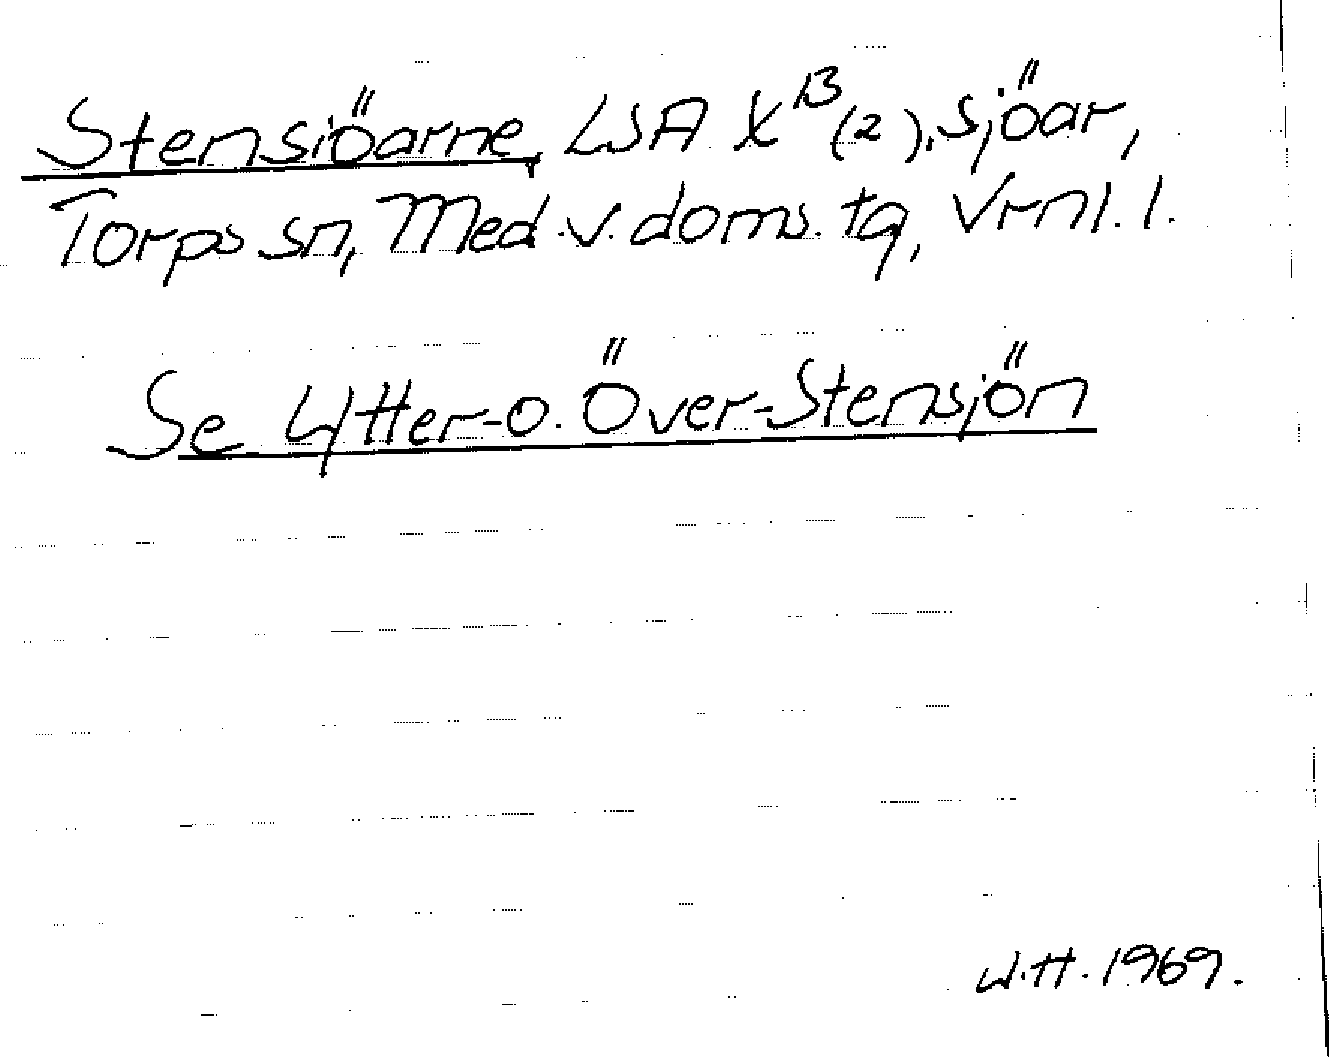 Stensiöarne, LSA X B (2), sjöar,
Torps sn, Med.v.doms.tg, Vrnl.l.
Se Ytter-o. Över-Stensjön
W.H. 1969.